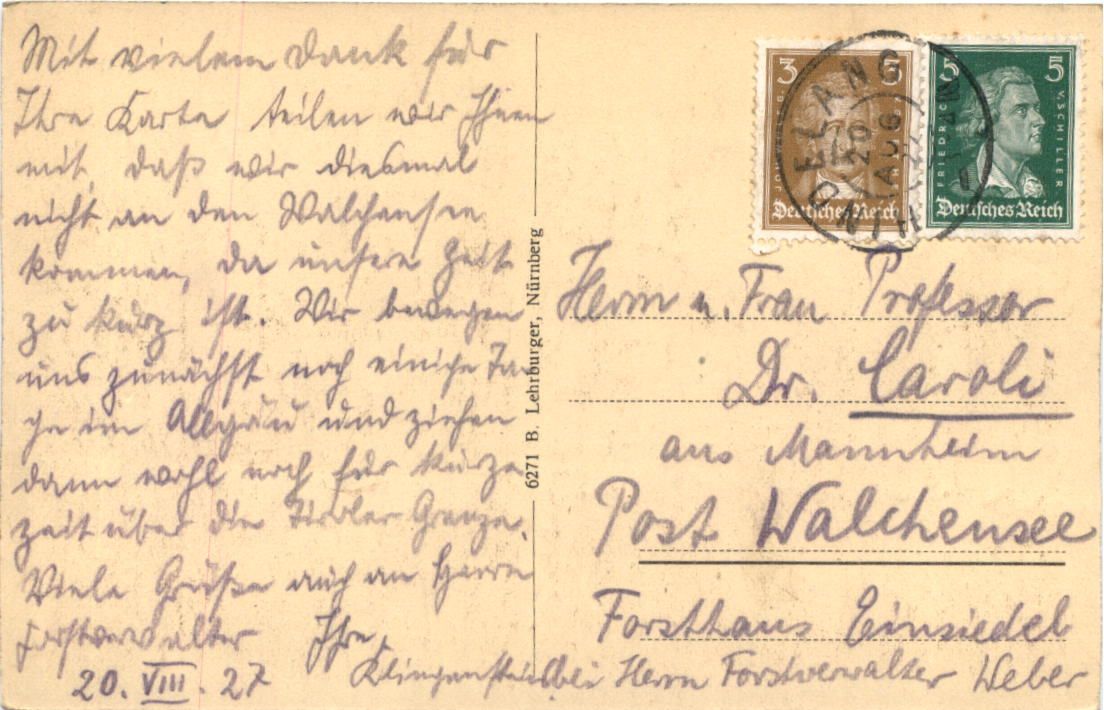 Mit vielem Dank für
Ihre Karte teilen wir Ihnen
mit, daß wir diesmal
nicht an den Walchensee
kommen, da unsere Zeit
zu kurz ist. Wir bewegen
uns zunächst noch einige Ta-
ge im Allgäu und ziehen
dann wohl noch für kurze
Zeit über die Tiroler Grenze.
Viele Grüße auch an Herrn
Forstverwalter Ihre
20. VIII. 27 Klingenstein
6271 B. Lehrburger, Nürnberg
3 3
Deutsches Reich
5 5
FRIEDRICH V. SCHILLER
Deutsches Reich
HINDELANG
20 AUG
Herrn u. Frau Professor
Dr. Caroli
aus Mannheim
Post Walchensee
Forsthaus Einsiedel
bei Herrn Forstverwalter Weber